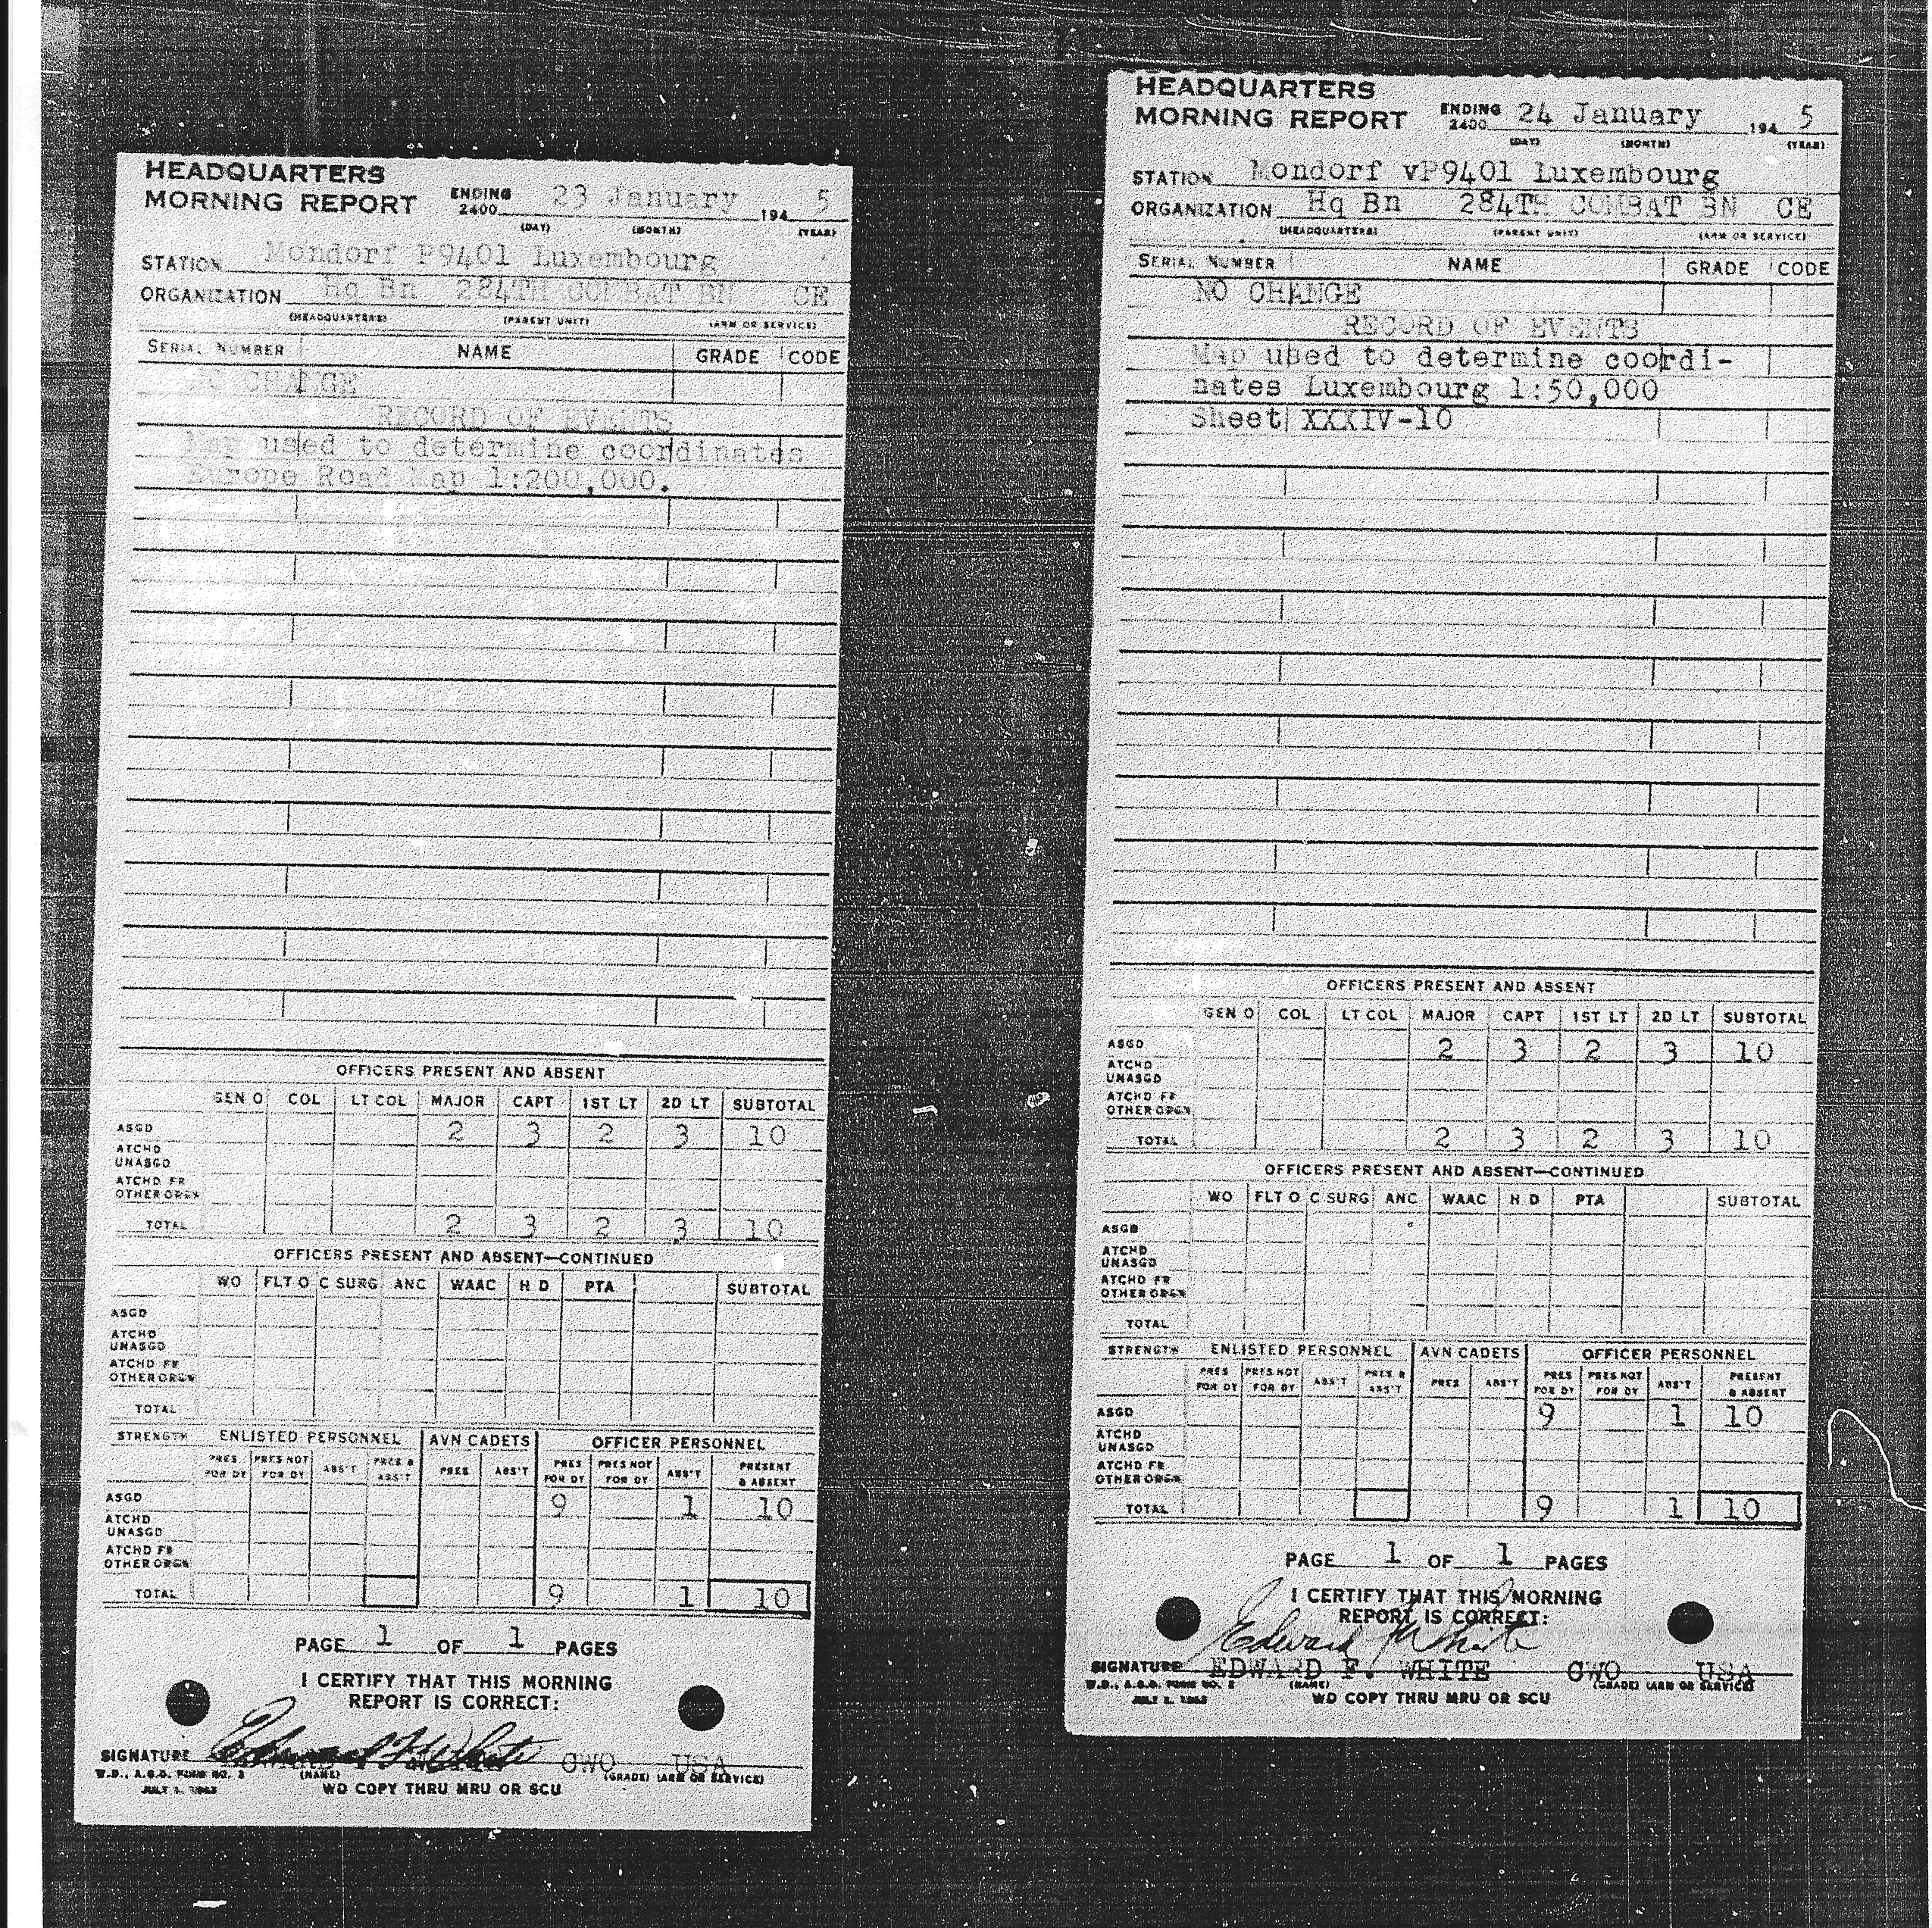 HEADQUARTERS
MORNING REPORT ENDING 2400 23 January 194 5
(DAY) (MONTH) (YEAR)
STATION Mondorf P9401 Luxembourg
ORGANIZATION Hq Bn 284TH COMBAT BN CE
(HEADQUARTERS) (PARENT UNIT) (ARM OR SERVICE)
SERIAL NUMBER NAME GRADE CODE
NO CHANGE
RECORD OF EVENTS
Map used to determine coordinates
Europe Road Map 1:200,000.
OFFICERS PRESENT AND ABSENT
GEN O COL LT COL MAJOR CAPT 1ST LT 2D LT SUBTOTAL
ASGD 2 3 2 3 10
ATCHD
UNASGD
ATCHD FR
OTHER ORGN
TOTAL 2 3 2 3 10
OFFICERS PRESENT AND ABSENT—CONTINUED
WO FLT O C SURG ANC WAAC H D PTA SUBTOTAL
ASGD
ATCHD
UNASGD
ATCHD FR
OTHER ORGN
TOTAL
STRENGTH ENLISTED PERSONNEL AVN CADETS OFFICER PERSONNEL
PRES PRES NOT ABS'T PRES & PRES ABS'T PRES PRES NOT ABS'T PRESENT
FOR DY FOR DY ABS'T FOR DY FOR DY & ABSENT
ASGD 9 1 10
ATCHD
UNASGD
ATCHD FR
OTHER ORGN
TOTAL 9 1 10
PAGE 1 OF 1 PAGES
I CERTIFY THAT THIS MORNING
REPORT IS CORRECT:
SIGNATURE Edward F. White CWO USA
W.D., A.G.O. FORM NO. 2 (NAME) (GRADE) (ARM OR SERVICE)
JULY 1, 1942 WD COPY THRU MRU OR SCU
HEADQUARTERS
MORNING REPORT ENDING 2400 24 January 194 5
(DAY) (MONTH) (YEAR)
STATION Mondorf vP9401 Luxembourg
ORGANIZATION Hq Bn 284TH COMBAT BN CE
(HEADQUARTERS) (PARENT UNIT) (ARM OR SERVICE)
SERIAL NUMBER NAME GRADE CODE
NO CHANGE
RECORD OF EVENTS
Map used to determine coordi-
nates Luxembourg 1:50,000
Sheet XXXIV-10
OFFICERS PRESENT AND ABSENT
GEN O COL LT COL MAJOR CAPT 1ST LT 2D LT SUBTOTAL
ASGD 2 3 2 3 10
ATCHD
UNASGD
ATCHD FR
OTHER ORGN
TOTAL 2 3 2 3 10
OFFICERS PRESENT AND ABSENT—CONTINUED
WO FLT O C SURG ANC WAAC H D PTA SUBTOTAL
ASGD
ATCHD
UNASGD
ATCHD FR
OTHER ORGN
TOTAL
STRENGTH ENLISTED PERSONNEL AVN CADETS OFFICER PERSONNEL
PRES PRES NOT ABS'T PRES & PRES ABS'T PRES PRES NOT ABS'T PRESENT
FOR DY FOR DY ABS'T FOR DY FOR DY & ABSENT
ASGD 9 1 10
ATCHD
UNASGD
ATCHD FR
OTHER ORGN
TOTAL 9 1 10
PAGE 1 OF 1 PAGES
I CERTIFY THAT THIS MORNING
REPORT IS CORRECT:
Edward F White
SIGNATURE EDWARD F. WHITE CWO USA
W.D., A.G.O. FORM NO. 2 (NAME) (GRADE) (ARM OR SERVICE)
WD COPY THRU MRU OR SCU